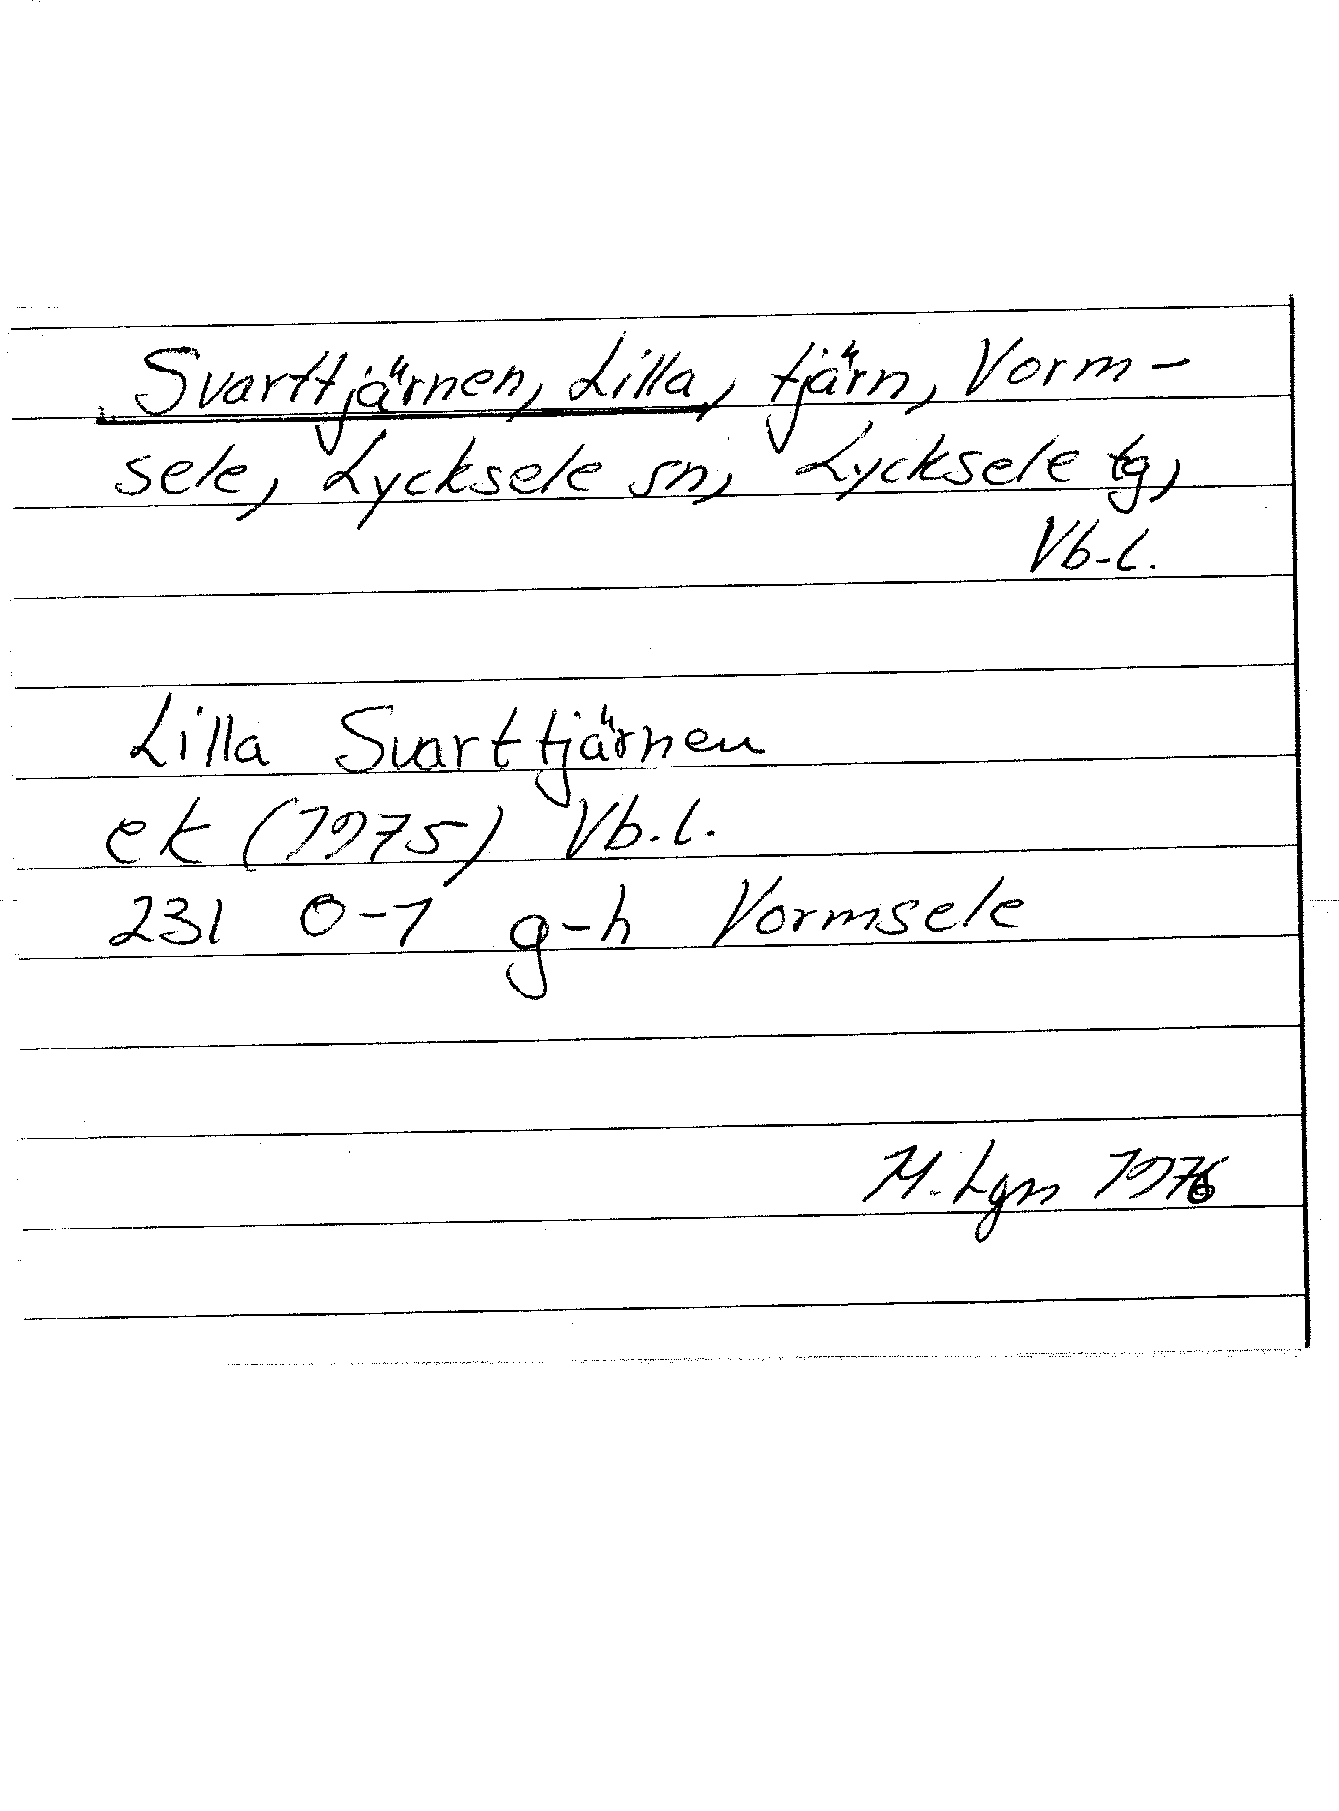 Svarttjärnen, Lilla, tjärn, Vorm-
sele, Lycksele sn, Lycksele tg,
Vb-l.
Lilla Svarttjärnen
ek (1975) Vb.l.
231 0-1 g-h Vormsele
M. Lgm 1976